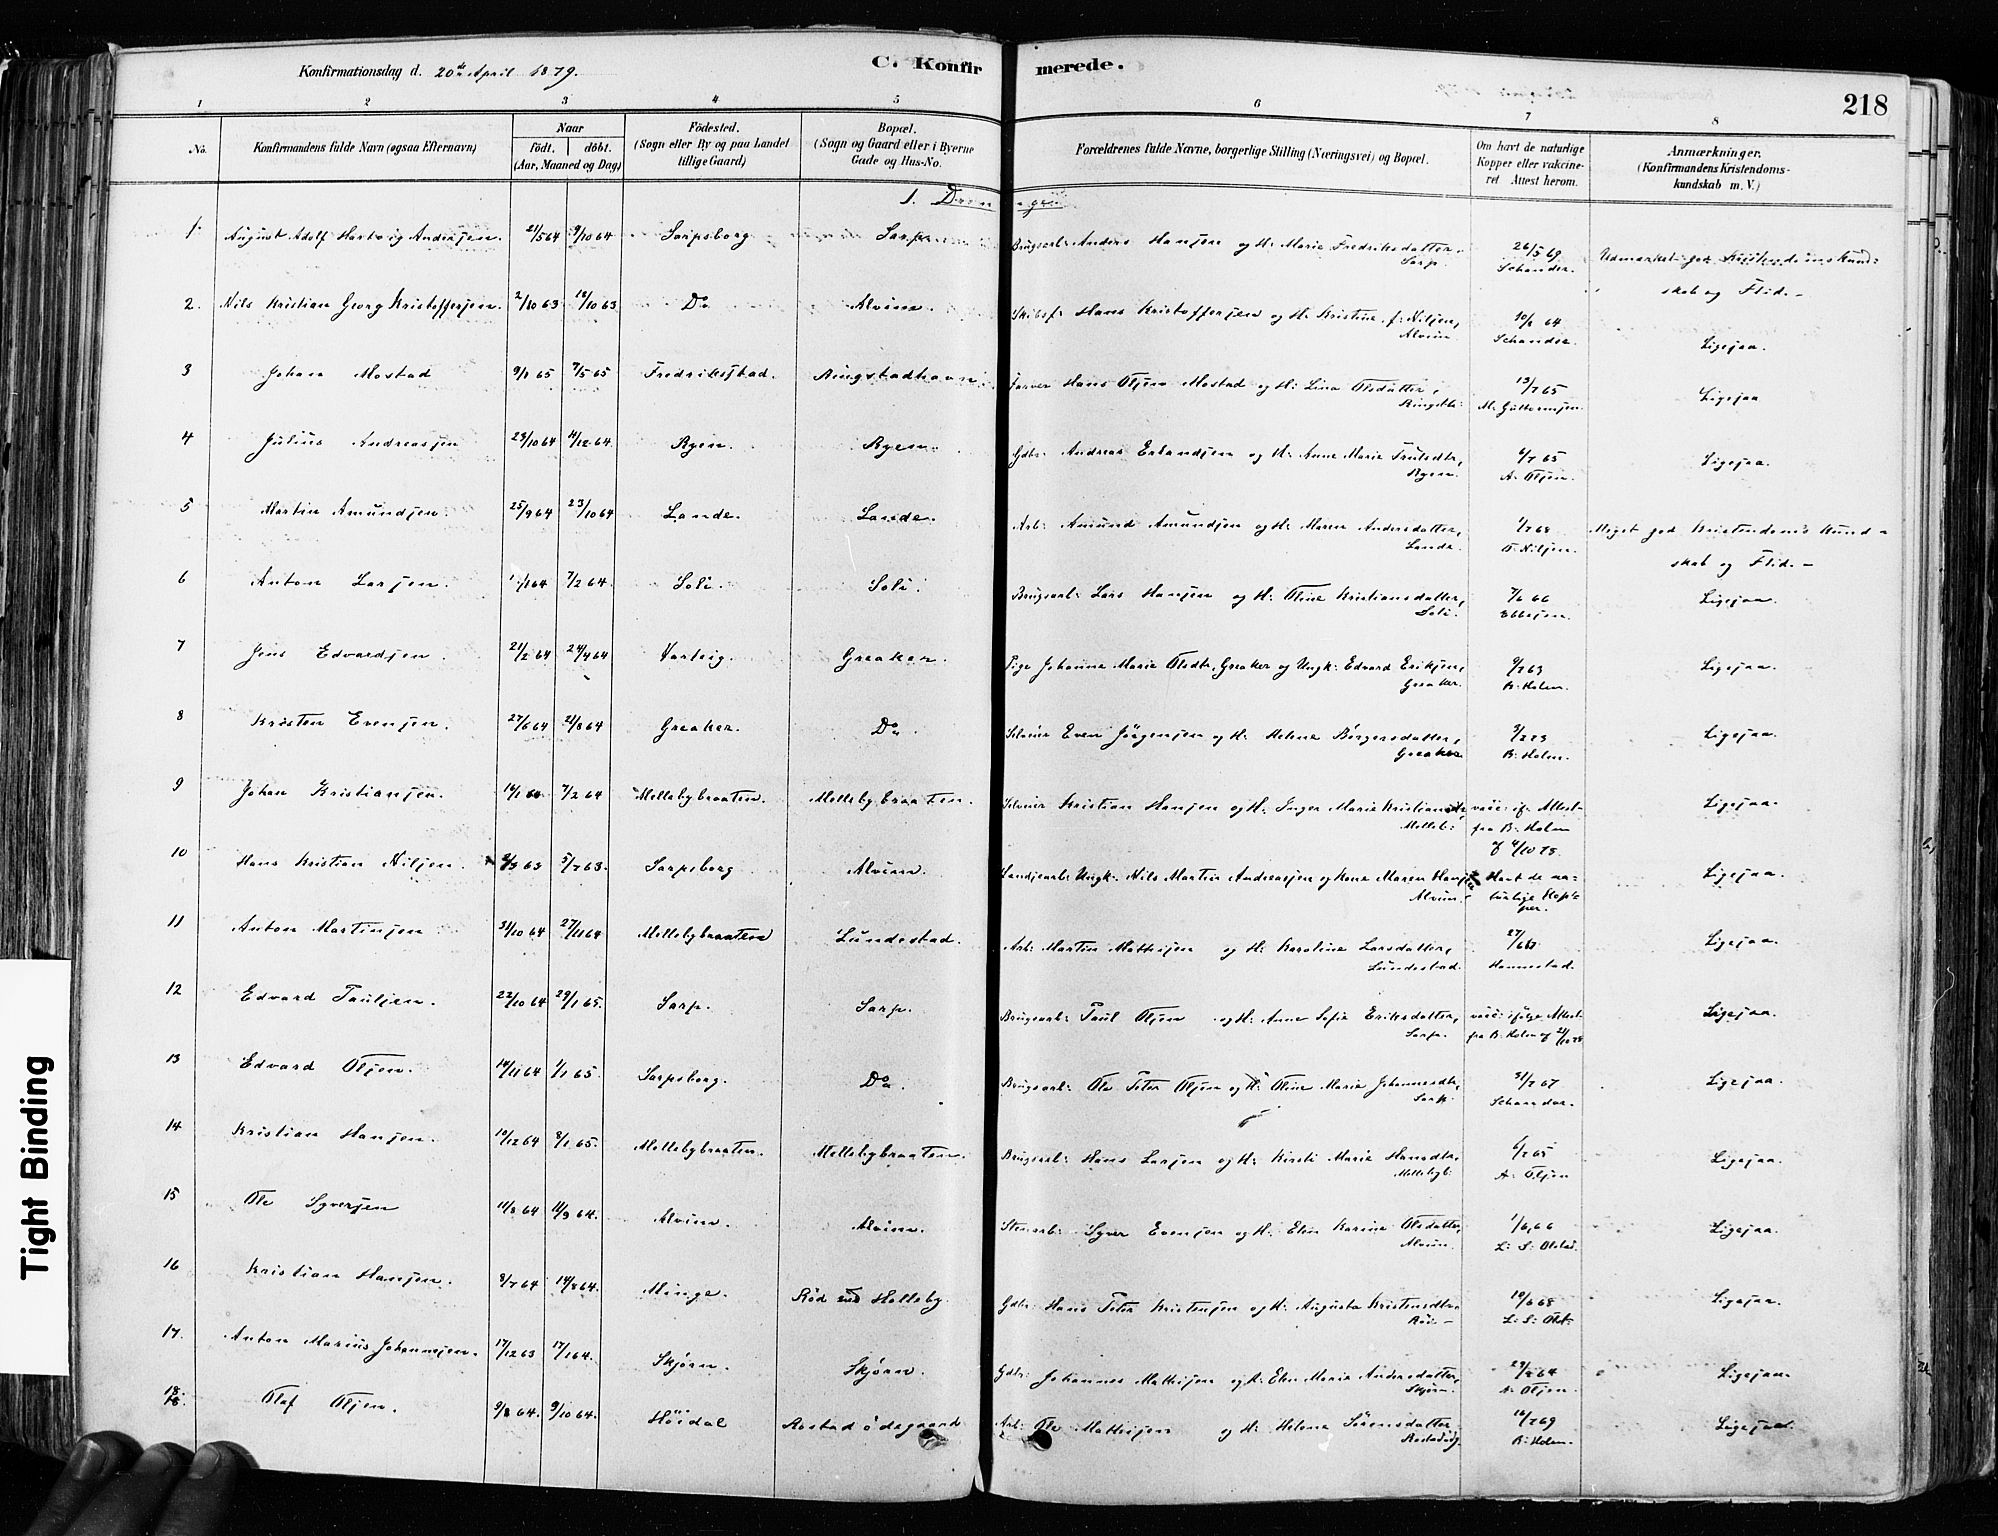 Konfirmationsdag d. 20de April 1879.
C. Konfirmerede.
218
1 2 3 4 5 6 7 8
No.
Konfirmandens fulde Navn (ogsaa Efternavn)
Naar
födt. döbt.
(Aar, Maaned og Dag)
Födested.
(Sogn eller By og paa Landet
tillige Gaard)
Bopæl.
(Sogn og Gaard eller i Byerne
Gade og Hus-No.
Forældrenes fulde Navne, borgerlige Stilling (Næringsvei) og Bopæl.
Om havt de naturlige
Kopper eller vakcine-
ret Attest herom.
Anmærkninger.
(Konfirmandens Kristendoms-
kundskab m. V.)
1. Drenge
1. August Adolf Hartvig Andersen. 21/5 64 9/10 64 Sarpsborg Sarp Brugsarb: Anders Hansen og H: Marie Fredriksdatter, Sarp. 26/5 69 Schander. Udmærket god Kristendomskund-
skab og Flid.-
2. Nils Kristian Georg Kristoffersen. 2/10 63 18/10 63 Do Alvim. Skibsf: Hans Kristoffersen og H: Kristine f: Nilsen, Alvim. 10/8 64 Schander. Ligesaa.
3 Johan Mostad 9/1 65 7/5 65 Fredrikstad. Ringstadhavn. Farver Hans Olsen Mostad og H: Lina Olsdatter, Ringstk: 13/7 65 M. Guttormsen. Ligesaa
4 Julius Andreassen 23/10 64 4/12 64. Ryen. Ryen. Gdbr: Andreas Erlandsen og H: Anne Marie Trulsdtr, Ryen. 6/7 65 A. Olsen. Ligesaa.
5 Martin Amundsen. 25/9 64 23/10 64 Lande. Lande. Arb: Amund Amundsen og H: Maren Andersdatter, Lande. 1/7 68 B. Nilsen. Meget god Kristendoms Kund-
skab og Flid.-
6 Anton Larsen. /1 64 7/2 64. Soli. Soli. Brugsarb: Lars Hansen og H: Oline Kristiansdatter, Soli. 7/6 66 Ebbesen. Ligesaa.
7 Jens Edvardsen. 21/2 64 24/4 64 Varteig. Greaker. Pige Johanne Marie Olsdtr, Greaker og Ungk: Edvard Eriksen, Greaker. 9/7 69 B. Holm. Ligesaa.
8 Kristen Evensen. 27/6 64 21/8 64 Greaker. Do. Selveier Even Jörgensen og H: Helene Börgersdatter, Greaker B. Holm. Ligesaa.
9 Johan Kristiansen. 14/1 64 7/2 64 Mellebybraaten. Mellebybraaten. Selveier Kristian Hansen og H: Inger Marie Kristiansdtr, Melleb: vacc: if. Attest
fra B: Holm
af 4/10 78. Ligesaa.
10 Hans Kristian Nilsen. 63 5/7 63. Sarpsborg Alvim. Landjearb: Ungk: Nils Martin Andreassen og Kone Maren Hansen Alvim. Havt de na-
turlige Kop-
per. Ligesaa.
11 Anton Martinsen 31/10 64 27/11 64 Mellebybraaten Lundestad. Arb: Martin Mathisen og H: Karoline Larsdatter, Lundestad. Hannestad. Ligesaa.
12 Edvard Paulsen. 22/10 64 29/1 65. Sarp. Sarp. Brugsarb: Paul Olsen og H: Anne Sofie Eriksdatter, Sarp. vacc: ifölge Attest
fra B. Holm af 21/10 78 Ligesaa.
13 Edvard Olsen. 14/11 64 1/1 65. Sarpsborg. Do. Brugsarb: Ole Peter Olsen og H: Oline Marie Johannesdtr, Sarp. 31/7 67 Schander. Ligesaa.
14 Kristian Hansen. 19/12 64 8/1 65. Mellebybraaten. Mellebybraaten. Brugsarb: Hans Larsen og H: Kirsti Marie Hansdtr, Mellebyb: 6/7 65 A. Olsen Ligesaa.
15 Ole Syversen 11/8 64 11/9 64. Alvim. Alvim. Stenarb: Syver Evensen og H: Elen Karine Olsdatter, Alvim. 1/6 66 L. S. Olstad. Ligesaa.
16 Kristian Hansen. 8/7 64 14/8 64. Minge. Röd ved Holleby. Gdbr: Hans Peter Kristensen og H: Augusta Kristensdtr. Röd- 10/6 68 L. S. Olst: Ligesaa.
17. Anton Marius Johannesen. 17/12 63 17/1 64. Skjörn. Skjörn. Gdbr: Johannes Mathisen og H: Elen Marie Andersdatter, Skjörn. 29/8 64 A. Olsen. Ligesaa.
18. Olaf Olsen. 9/8 64. 9/10 64. Höidal Rostad ödegaard Arb: Ole Mathisen og H: Helene Sörensdatter Rostadödg. 16/7 69 B. Holm. Ligesaa.
Tight Binding